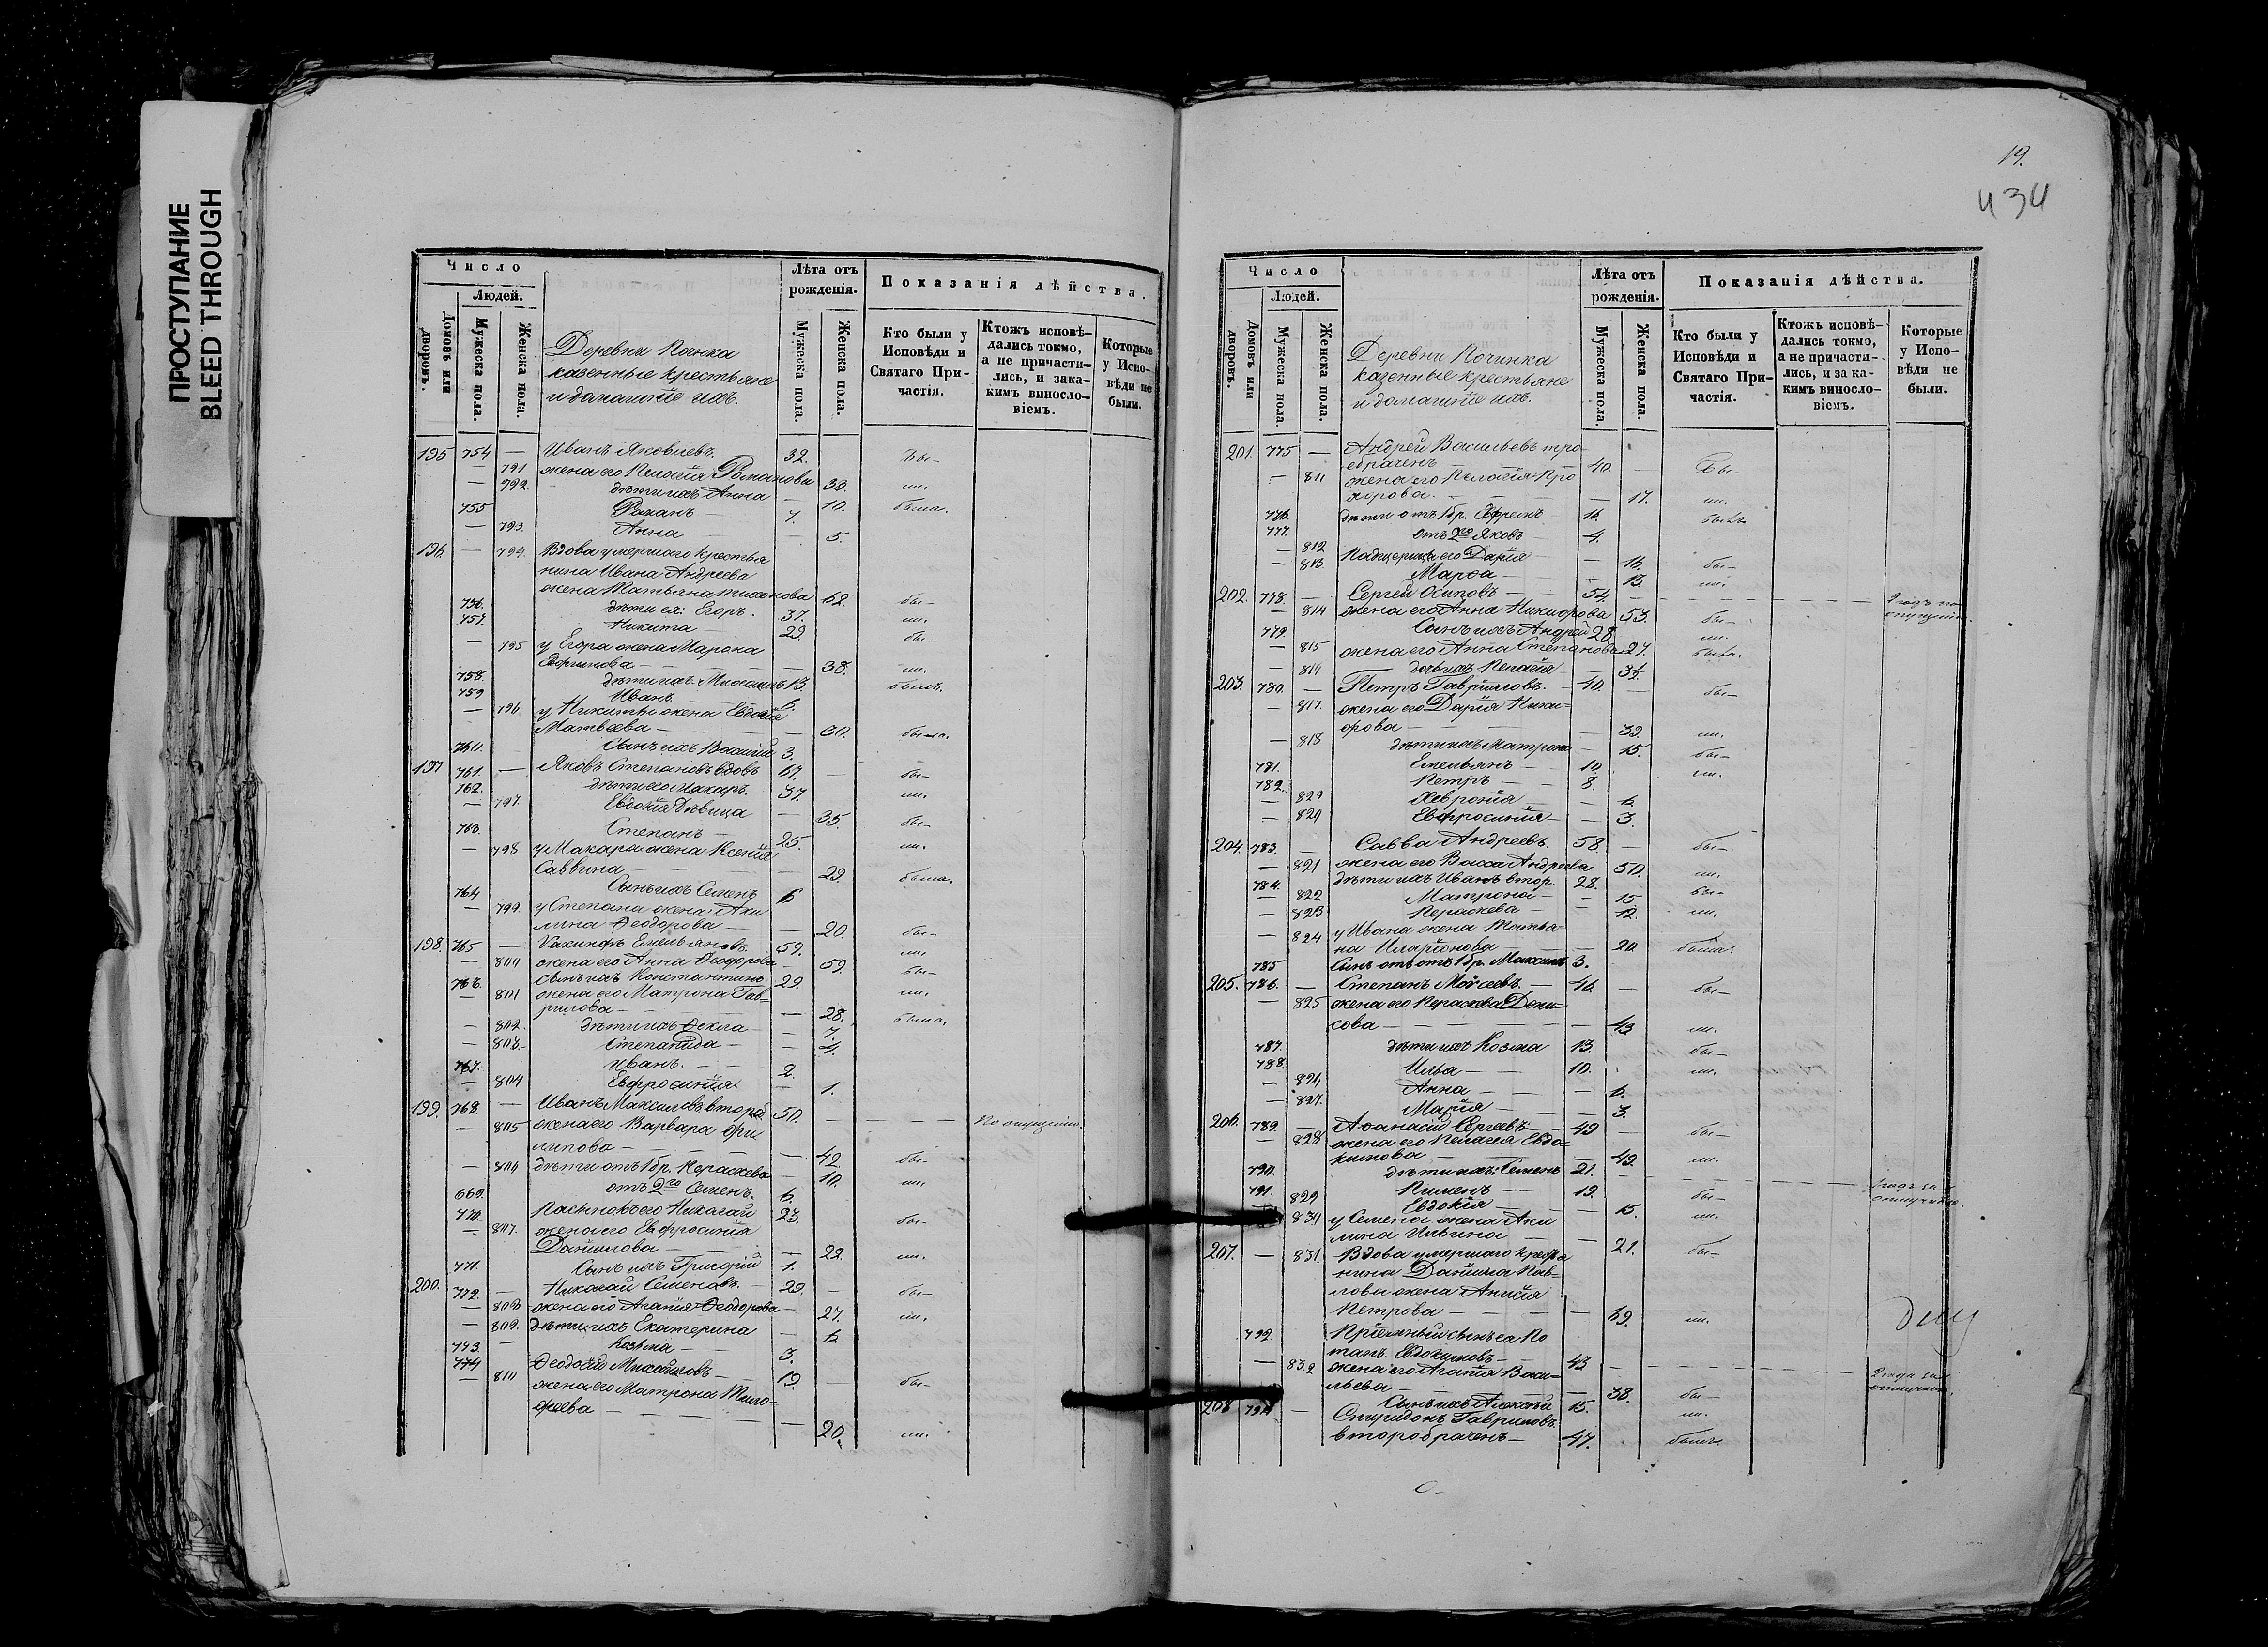 ПРОСТУПАНИЕ
BLEED THROUGH
Число
Людей.
Домовъ или дворовъ.
Мужеска пола.
Женска пола.
Деревни Починка
казенные крестьяне
и домашніе ихъ.
Лѣта отъ рожденія.
Мужеска пола.
Женска пола.
Показанія дѣйства.
Кто были у Исповѣди и Святаго При-частія.
Ктожъ исповѣ-дались токмо, а не причасти-лись, и зака-кимъ виносло-віемъ.
Которые у Испо-вѣди не были.
195 754 — Иванъ Яковлевъ. 32. бы-
— 791 жена его Пелагія Романова 33. ли.
— 792. дѣти ихъ Анна — 10. была.
755 Романъ — 7.
— 793. Анна — — 5.
196. — 794. Вдова умершаго крестья
нина Ивана Андреева
жена Матьяна 62. бы-
756. дѣти ея: Егоръ. 37. ли.
757. Никита — 29. бы-
— 795 у Егора жена Марѳа
— — — 38. ли.
758. дѣти ихъ 13. былъ.
759 Иванъ 6.
— 796 у Никиты жена Евдокія
Матвѣева — — — 30. была.
760. сынъ ихъ Василій 3.
197 761. — Яковъ Степановъ вдовъ 67. — бы-
762. дѣти его Макаръ. 37. ли.
— 797. Евдокія дѣвица — 35. бы-
763. Степанъ — 25. ли.
— 798 у Макара жена Ксенія
Саввина — — — 29. была.
764 Сынъ ихъ Семенъ 6
— 799. у Степана жена Аки
лина Ѳеодорова — — 20. бы-
198. 765 — Емельяновъ. 59. ли.
— 800 жена его Анна Ѳеодорова — 59. бы-
766. сынъ ихъ Константинъ 29. ли.
— 801 жена его Матрона Гав=
рилова — — — 28. была.
— 802. дѣти ихъ Ѳекла — — 7.
— 803. Степанида — — 4.
767. Иванъ. — — 2.
— 804 Евфросинія. — 1.
199. 768. — Иванъ Максимовъ вторый 50. — — — — По опущенію.
— 805 жена его Варвара Фи
липова — — — — 42. бы-
— 806 дѣти отъ 1 бр. Параскева — 10. ли.
669. отъ 2го Семенъ. 6.
770. Пасынокъ его Николай 23. бы-
— 807. жена его Евфросинія
Данилова — — — 22. ли.
771. Сынъ ихъ Григорій 1.
200. 772. — Николай Семеновъ. — 29. — бы-
— 808 жена его Агапія Ѳеодорова — 27. ли.
— 809. дѣти ихъ Екатерина — 6
773. — Козьма — — 3.
774 Михайловъ — 19. — бы-
— 810 жена его Матрона Тимо-
феева — — — — — 20. ли.
19.
434
Число
Людей.
Домовъ или дворовъ.
Мужеска пола.
Женска пола.
Деревни Починка
казенные крестьяне
и домашніе ихъ.
Лѣта отъ рожденія.
Мужеска пола.
Женска пола.
Показанія дѣйства.
Кто были у Исповѣди и Святаго При-частія.
Ктожъ исповѣ-дались токмо, а не причасти-лись, и за ка-кимъ винослo-віемъ.
Которые у Испо-вѣди не были.
201. 775 — Андрей Васильевъ тро-
ебраченъ — — 40. — бы-
— 811 жена его Пелагія Про
хорова. — — — — 17. ли.
776. дѣти отъ 1 бр. Ефремъ — 16. былъ
777. отъ 2го Яковъ — 4.
— 812 Падчерицы его Дарія — — 16. бы-
— 813. Марѳа — — 13. ли.
202. 778. — Сергей Осиповъ — — 54. — — — —
— 814 жена его Анна Никифорова 53. бы-
779. Сынъ ихъ Андрей 28. ли.
— 815 жена его Анна Степанова 27. были.
— 816 дочь ихъ Пелагія — 3½
203. 780. — Петръ Гавриловъ. — 40. — бы-
— 817. жена его Дарія Ники=
форова — — — — 39. ли.
— 818 дѣти ихъ Матрона — 15. бы-
781. Емельянъ — 10. ли.
782. Петръ — — 8.
— 829 Хеврония — — 6.
— 820 Евфросинія — — 3.
204. 783. — Савва Андреевъ. 58. — бы-
— 821 жена его Васса Андреева 50. ли.
784. дѣти ихъ Иванъ втор. 28. бы-
— 822 Матрона — — 15. ли.
— 823 Параскева — — 12.
— 824 у Ивана жена Татья-
на Иларіонова — — — 20 была.
785 Сынъ отъ отъ 1 бр. Максимъ 3.
205. 786. — Степанъ Моѵсеевъ. — 46. — бы-
— 825 жена его Параскева Дени=
сова — — — — — 43 ли.
787. дѣти ихъ Козма 13. бы-
788. Илья — — 10. ли.
— 826 Анна — — — 6.
— 827. Марія — — — 3.
206. 789. — Аѳанасій Сергеевъ — 49 — бы-
— 828 жена его Пелагея Евдо=
кимова — — — — 49. ли.
790. дѣти ихъ: Семенъ 21. — — — — —
791. Пименъ — 19. бы-
829 Евдокія — — 15. ли.
830 у Семена жена Аки
лина Ильина — — 21. бы-
207. — 831. Вдова умершаго крестья
нина Даніила Пав=
лова жена Анисія
Петрова — — — — 69. ли.
792. Пріемный сынъ ея По
тапъ Евдокимовъ — 43 — — — — —
— 832 жена его Агапія Васи=
льева — — — — 38. бы-
Сынъ ихъ Алексѣй 15. ли.
208 794 — Спиридонъ Гавриловъ
второбраченъ — 47. былъ.